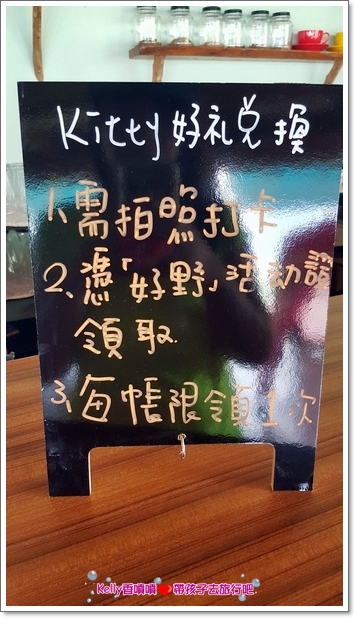 Kitty好礼兑換
1.需拍照打卡
2、憑「好野」活动證
領取
3、每帳限領1次
Kelly香噴噴❤帶孩子去旅行吧